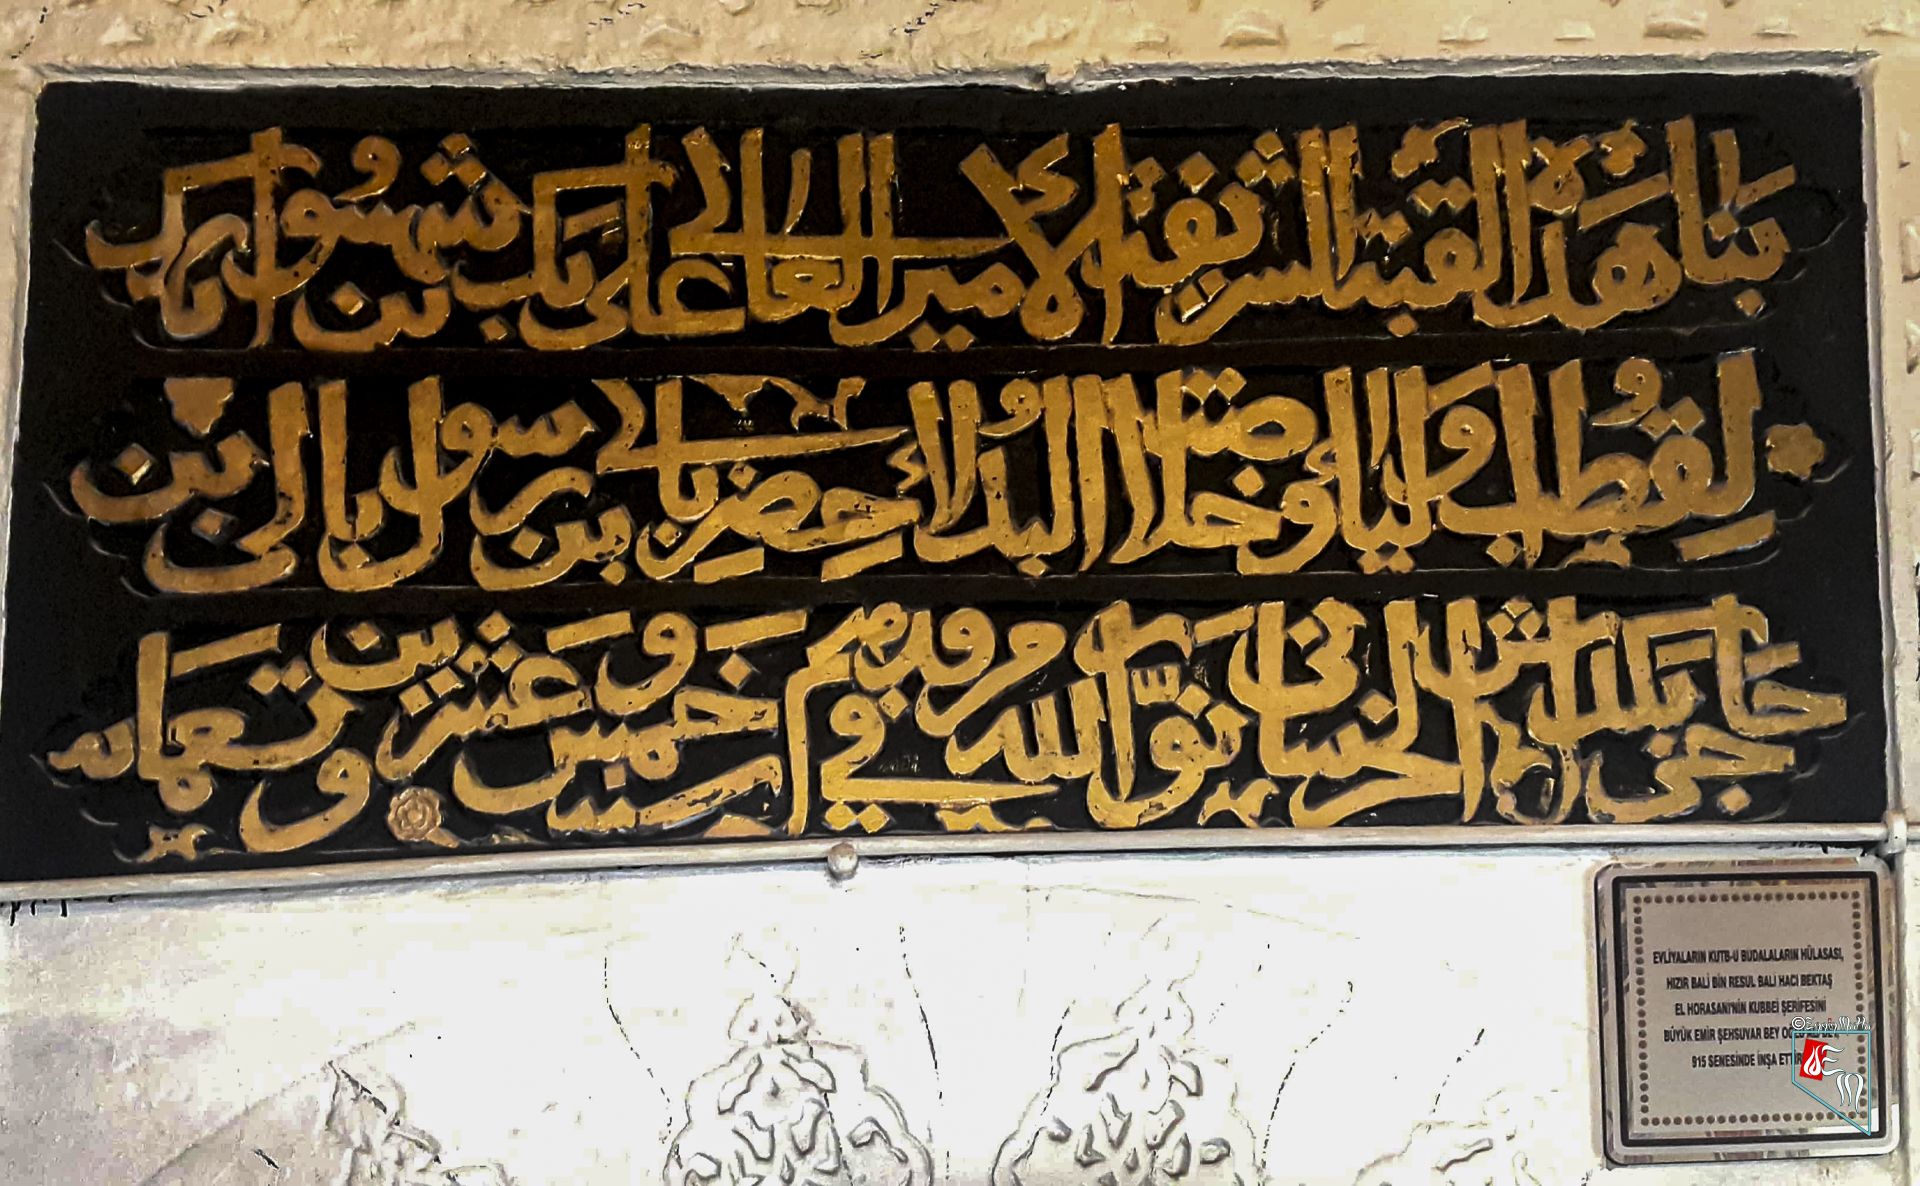 بنا هذه القبة الشريفة الامير العالي علي بك بن شهسوار بك
لقطب الاولياء و خلاصة البدلاء خضر بالي بن رسول بالي بن
حاجي بكتاش الخرساني نور الله مرقده في سنة خمس و عشرين و تسعمايه
EVLİYALARIN KUTB-U BUDALALARIN HÜLASASI,
HIZIR BALİ BİN RESUL BALİ HACI BEKTAŞ
EL HORASANİ'NİN KUBBEİ ŞERİFESİNİ
BÜYÜK EMİR ŞEHSUVAR BEY
915 SENESİNDE İNŞA